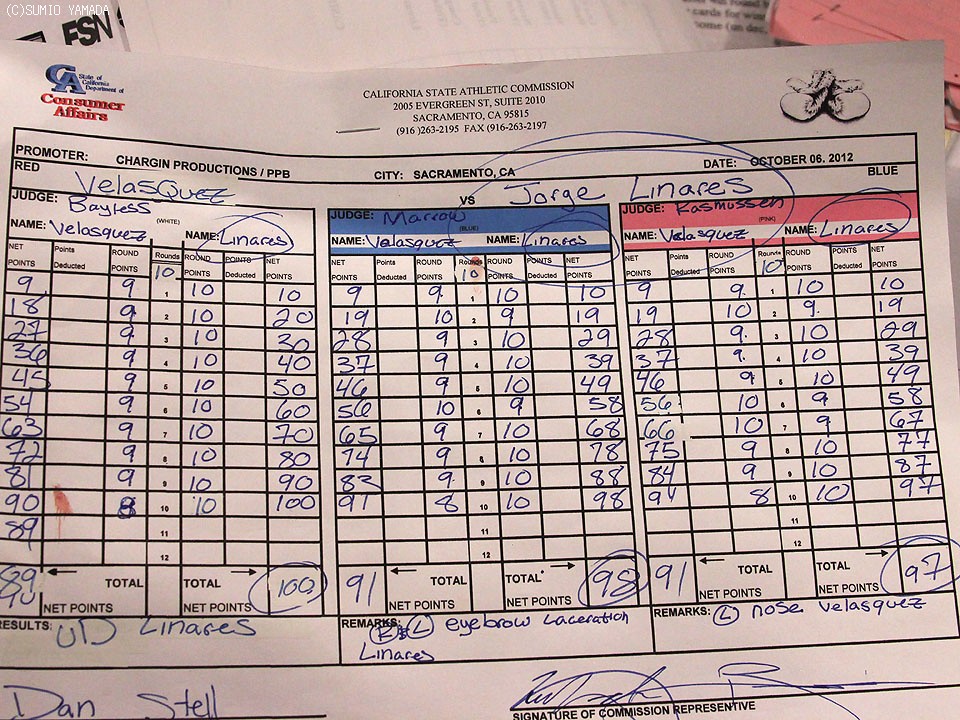 (C)SUMIO YAMADA
FSN
cards for win
some (un dec,
CA State of California Department of
Consumer Affairs
CALIFORNIA STATE ATHLETIC COMMISSION
2005 EVERGREEN ST, SUITE 2010
SACRAMENTO, CA 95815
(916 )263-2195 FAX (916-263-2197
PROMOTER: CHARGIN PRODUCTIONS / PPB CITY: SACRAMENTO, CA DATE: OCTOBER 06, 2012
RED VelaSQuez VS Jorge Linares BLUE
JUDGE: Bayless (WHITE) JUDGE: Marrow (BLUE) JUDGE: Rasmussen (PINK)
NAME: Velasquez NAME: Linares NAME: Velasquez NAME: Linares NAME: Velasquez NAME: Linares
NET POINTS Points Deducted ROUND POINTS Rounds 10 ROUND POINTS Points Deducted NET POINTS NET POINTS Points Deducted ROUND POINTS Rounds 10 ROUND POINTS Points Deducted NET POINTS NET POINTS Points Deducted ROUND POINTS Rounds 10 ROUND POINTS Points Deducted NET POINTS
9 9 1 10 10 9 9 1 10 10 9 9 1 10 10
18 9 2 10 20 19 10 2 9 19 19 10 2 9 19
27 9 3 10 30 28 9 3 10 29 28 9 3 10 29
36 9 4 10 40 37 9 4 10 39 37 9 4 10 39
45 9 5 10 50 46 9 5 10 49 46 9 5 10 49
54 9 6 10 60 56 10 6 9 58 56 10 6 9 58
63 9 7 10 70 65 9 7 10 68 66 10 7 9 67
72 9 8 10 80 74 9 8 10 78 75 9 8 10 77
81 9 9 10 90 83 9 9 10 88 84 9 9 10 87
90 8 10 10 100 91 8 10 10 98 91 8 10 10 97
89 11 11 11
12 12 12
89 TOTAL TOTAL 100 91 TOTAL TOTAL 98 91 TOTAL TOTAL 97
90 NET POINTS NET POINTS NET POINTS NET POINTS NET POINTS NET POINTS
RESULTS: UD Linares REMARKS: R & L eyebrow Laceration REMARKS: L nose Velasquez
Linares
Dan Stell
SIGNATURE OF COMMISSION REPRESENTATIVE